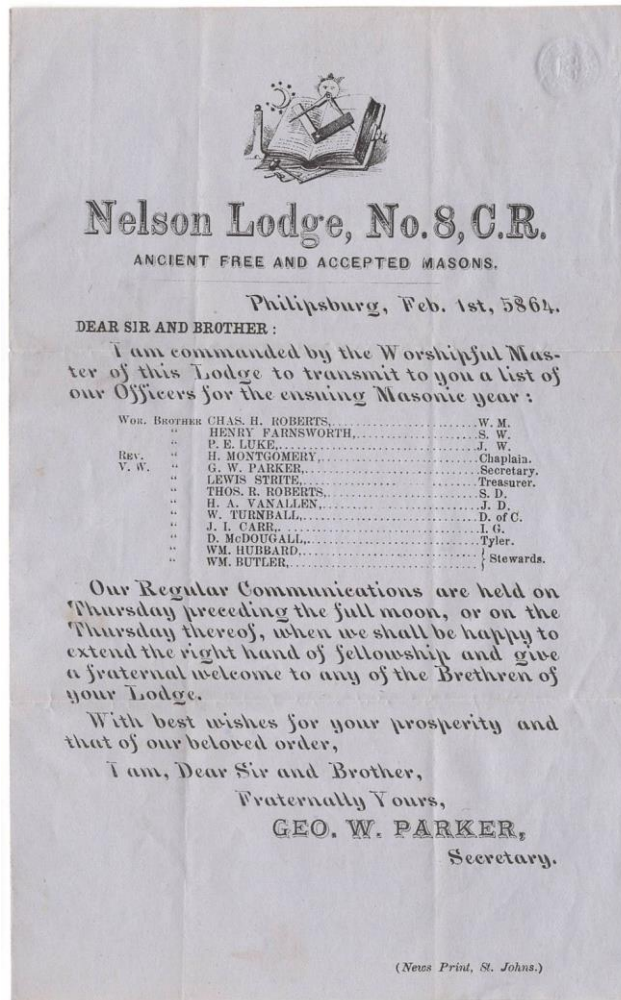 Nelson Lodge, No. 8, C.R.
ANCIENT FREE AND ACCEPTED MASONS.
Philipsburg, Feb. 1st, 5864.
DEAR SIR AND BROTHER:
I am commanded by the Worshipful Mas-
ter of this Lodge to transmit to you a list of
our Officers for the ensuing Masonic year:
WOR. BROTHER CHAS. H. ROBERTS,..........W. M.
" HENRY FARNSWORTH,..........S. W.
" P. E. LUKE,..........J. W.
REV. " H. MONTGOMERY,..........Chaplain.
V. W. " G. W. PARKER,..........Secretary.
" LEWIS STRITE,..........Treasurer.
" THOS. R. ROBERTS,..........S. D.
" H. A. VANALLEN,..........J. D.
" W. TURNBALL,..........D. of C.
" J. I. CARR,..........I. G.
" D. McDOUGALL,..........Tyler.
" WM. HUBBARD,..........
" WM. BUTLER,.......... } Stewards.
Our Regular Communications are held on
Thursday preceding the full moon, or on the
Thursday thereof, when we shall be happy to
extend the right hand of fellowship and give
a fraternal welcome to any of the Brethren of
your Lodge.
With best wishes for your prosperity and
that of our beloved order,
I am, Dear Sir and Brother,
Fraternally Yours,
GEO. W. PARKER,
Secretary.
(News Print, St. Johns.)